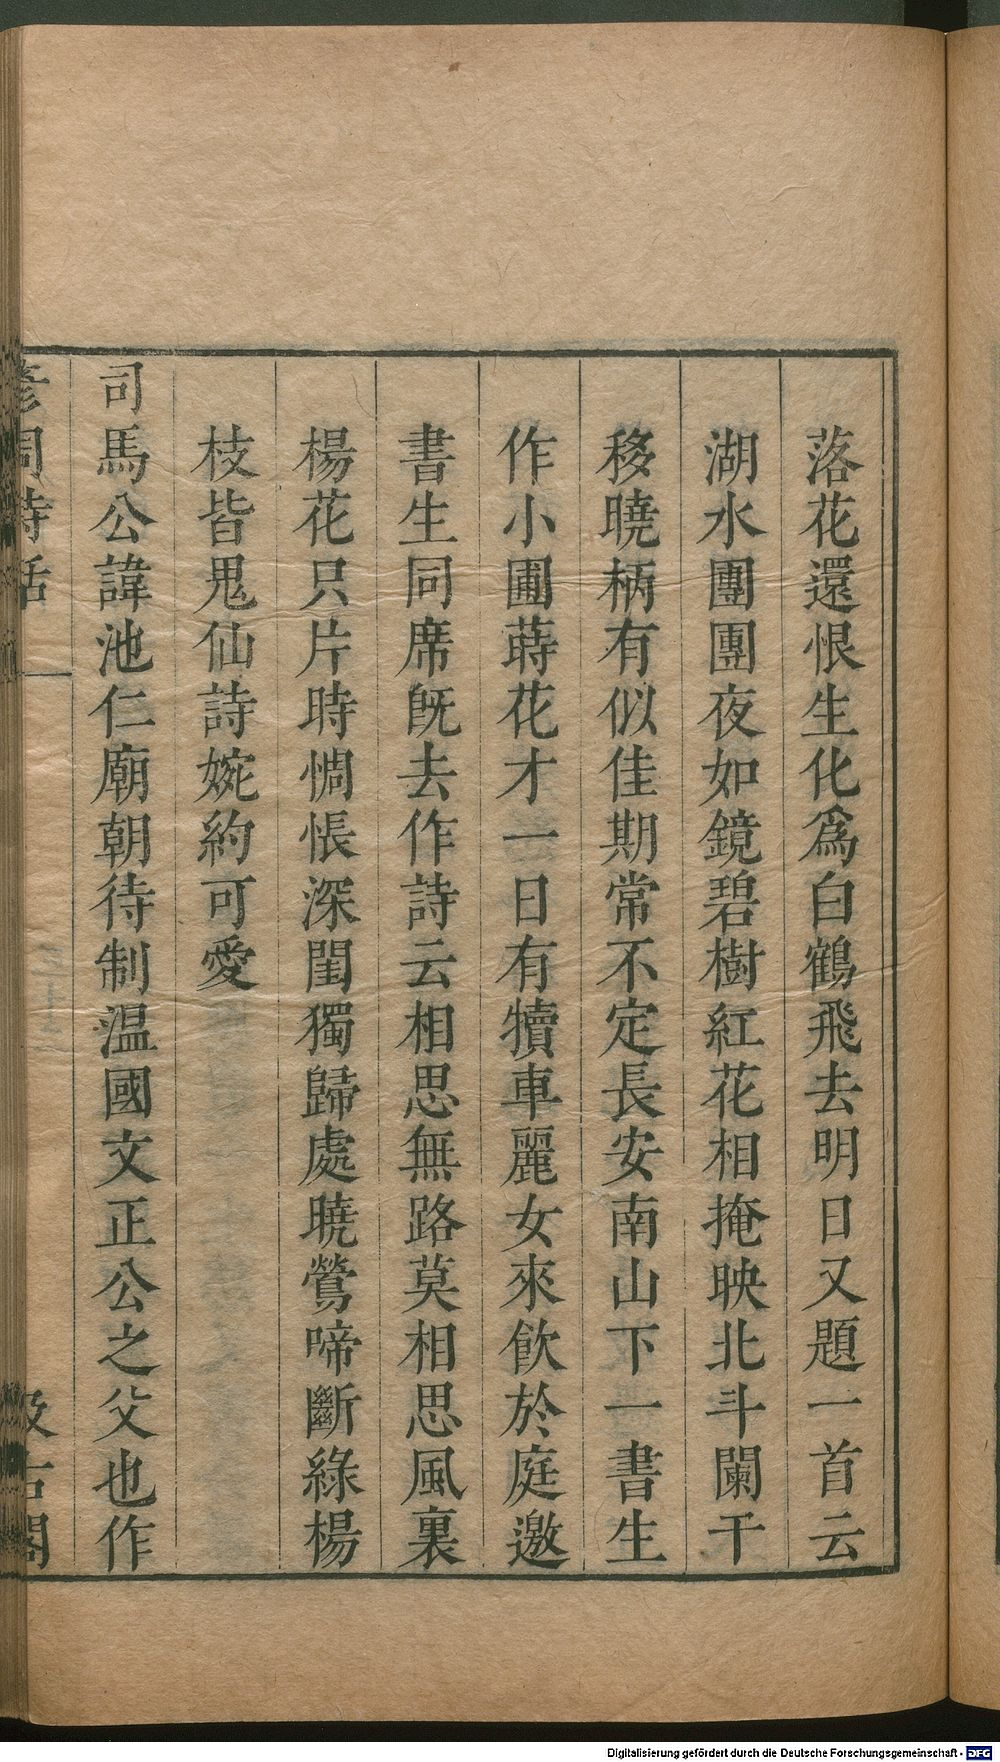 落花還恨生化爲白鶴飛去明日又題一首云
湖水團團夜如鏡碧樹紅花相掩映北斗闌干
移曉柄有似佳期常不定長安南山下一書生
作小圃蒔花才一日有犢車麗女來飲於庭邀
書生同席旣去作詩云相思無路莫相思風裏
楊花只片時惆悵深閨獨歸處曉鶯啼斷綠楊
枝皆鬼仙詩婉約可愛
司馬公諱池仁廟朝待制溫國文正公之父也作
彥周詩話
汲古閣
Digitalisierung gefördert durch die Deutsche Forschungsgemeinschaft - DFG